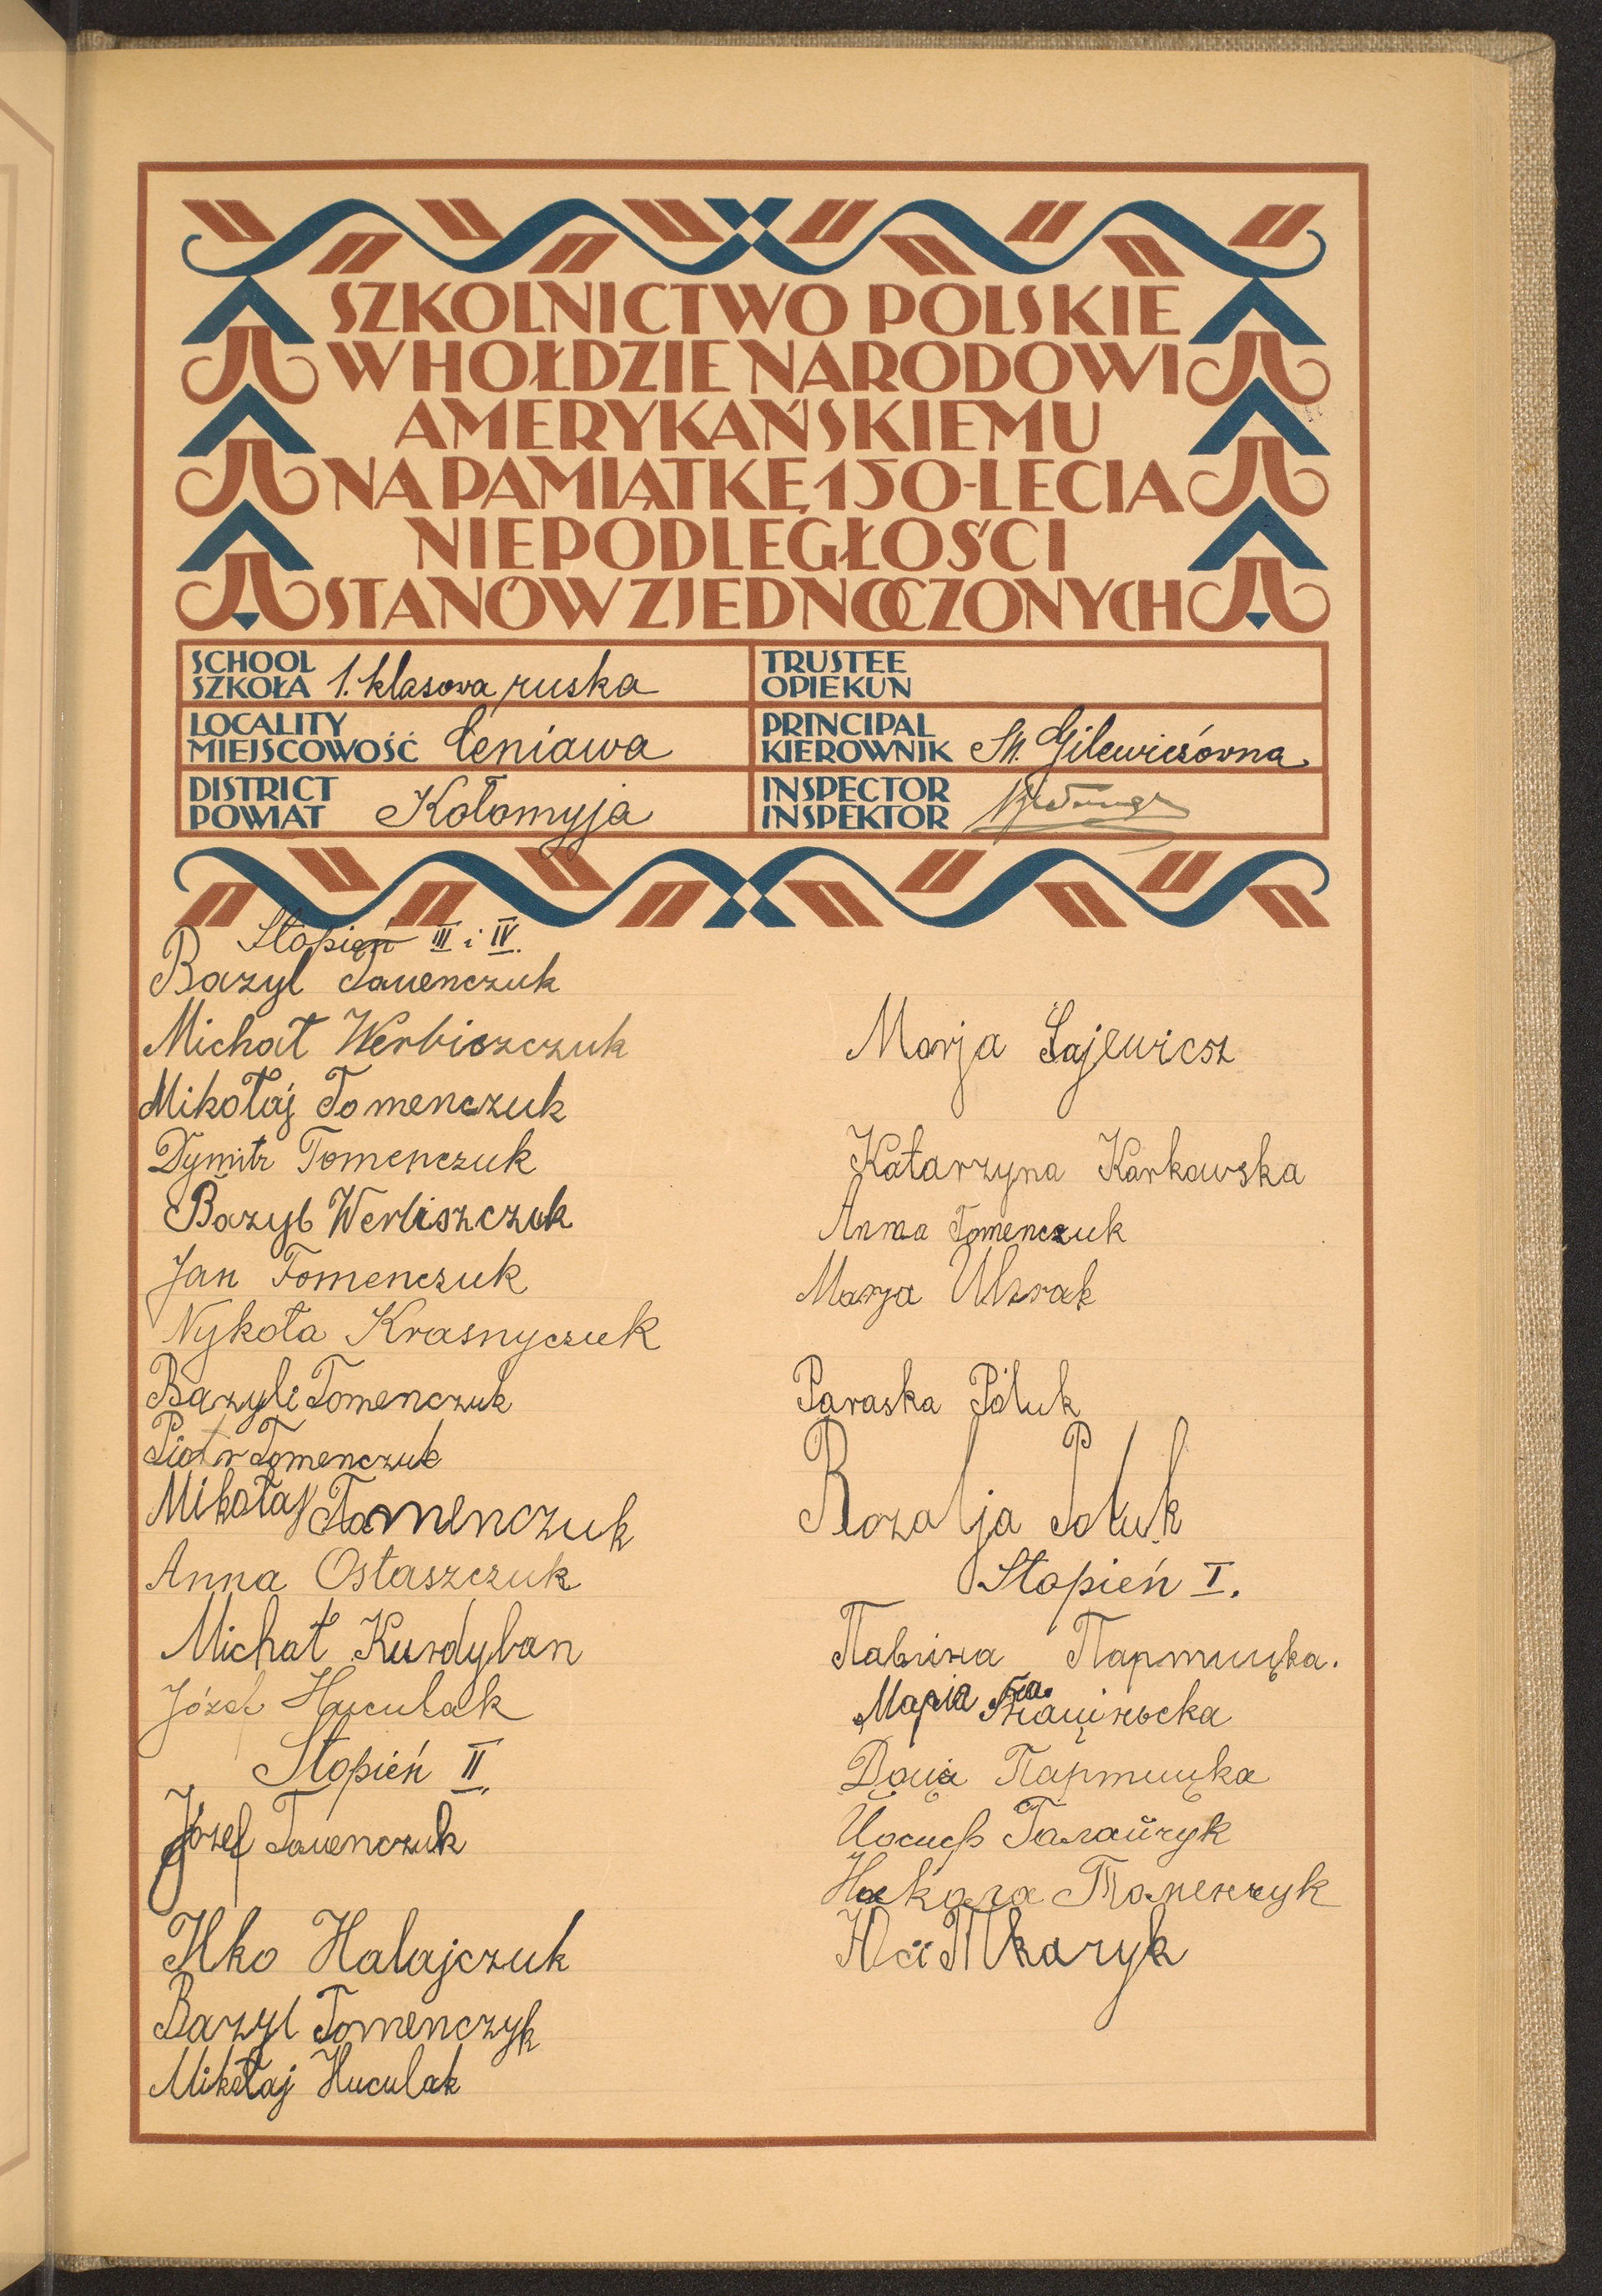 SZKOLNICTWO POLSKIE
W HOŁDZIE NARODOWI
AMERYKAŃSKIEMU
NA PAMIĄTKĘ 150-LECIA
NIEPODLEGŁOŚCI
STANÓW ZJEDNOCZONYCH
SCHOOL
SZKOŁA 1. klasova ruska
TRUSTEE
OPIEKUN
LOCALITY
MIEJSCOWOŚĆ Ceniawa
PRINCIPAL
KIEROWNIK St. Gilewiczówna
DISTRICT
POWIAT Kołomyja
INSPECTOR
INSPEKTOR
Stopień III i IV.
Bazyl Tauenczuk
Michał Werbiszczuk
Mikołaj Tomenczuk
Dymitr Tomenczuk
Bazyl Werbiszczuk
Jan Tomenczuk
Nykoła Krasnyczuk
Bazyli Tomenczuk
Piotr Tomenczuk
Mikołaj Tomenczuk
Anna Ostaszczuk
Michał Kurdyban
Józef Huculak
Stopień II.
Józef Tauenczuk
Ilko Halajczuk
Bazyl Tomenczyk
Mikołaj Huculak
Marja Łajewicsz
Katarzyna Karkowska
Anna Tomenczuk
Marja
Paraska Półuk
Rozalja Połuk
Stopień I.
Павлина
Марія
Йосиф Галайчук
Томенчук
Ткачук